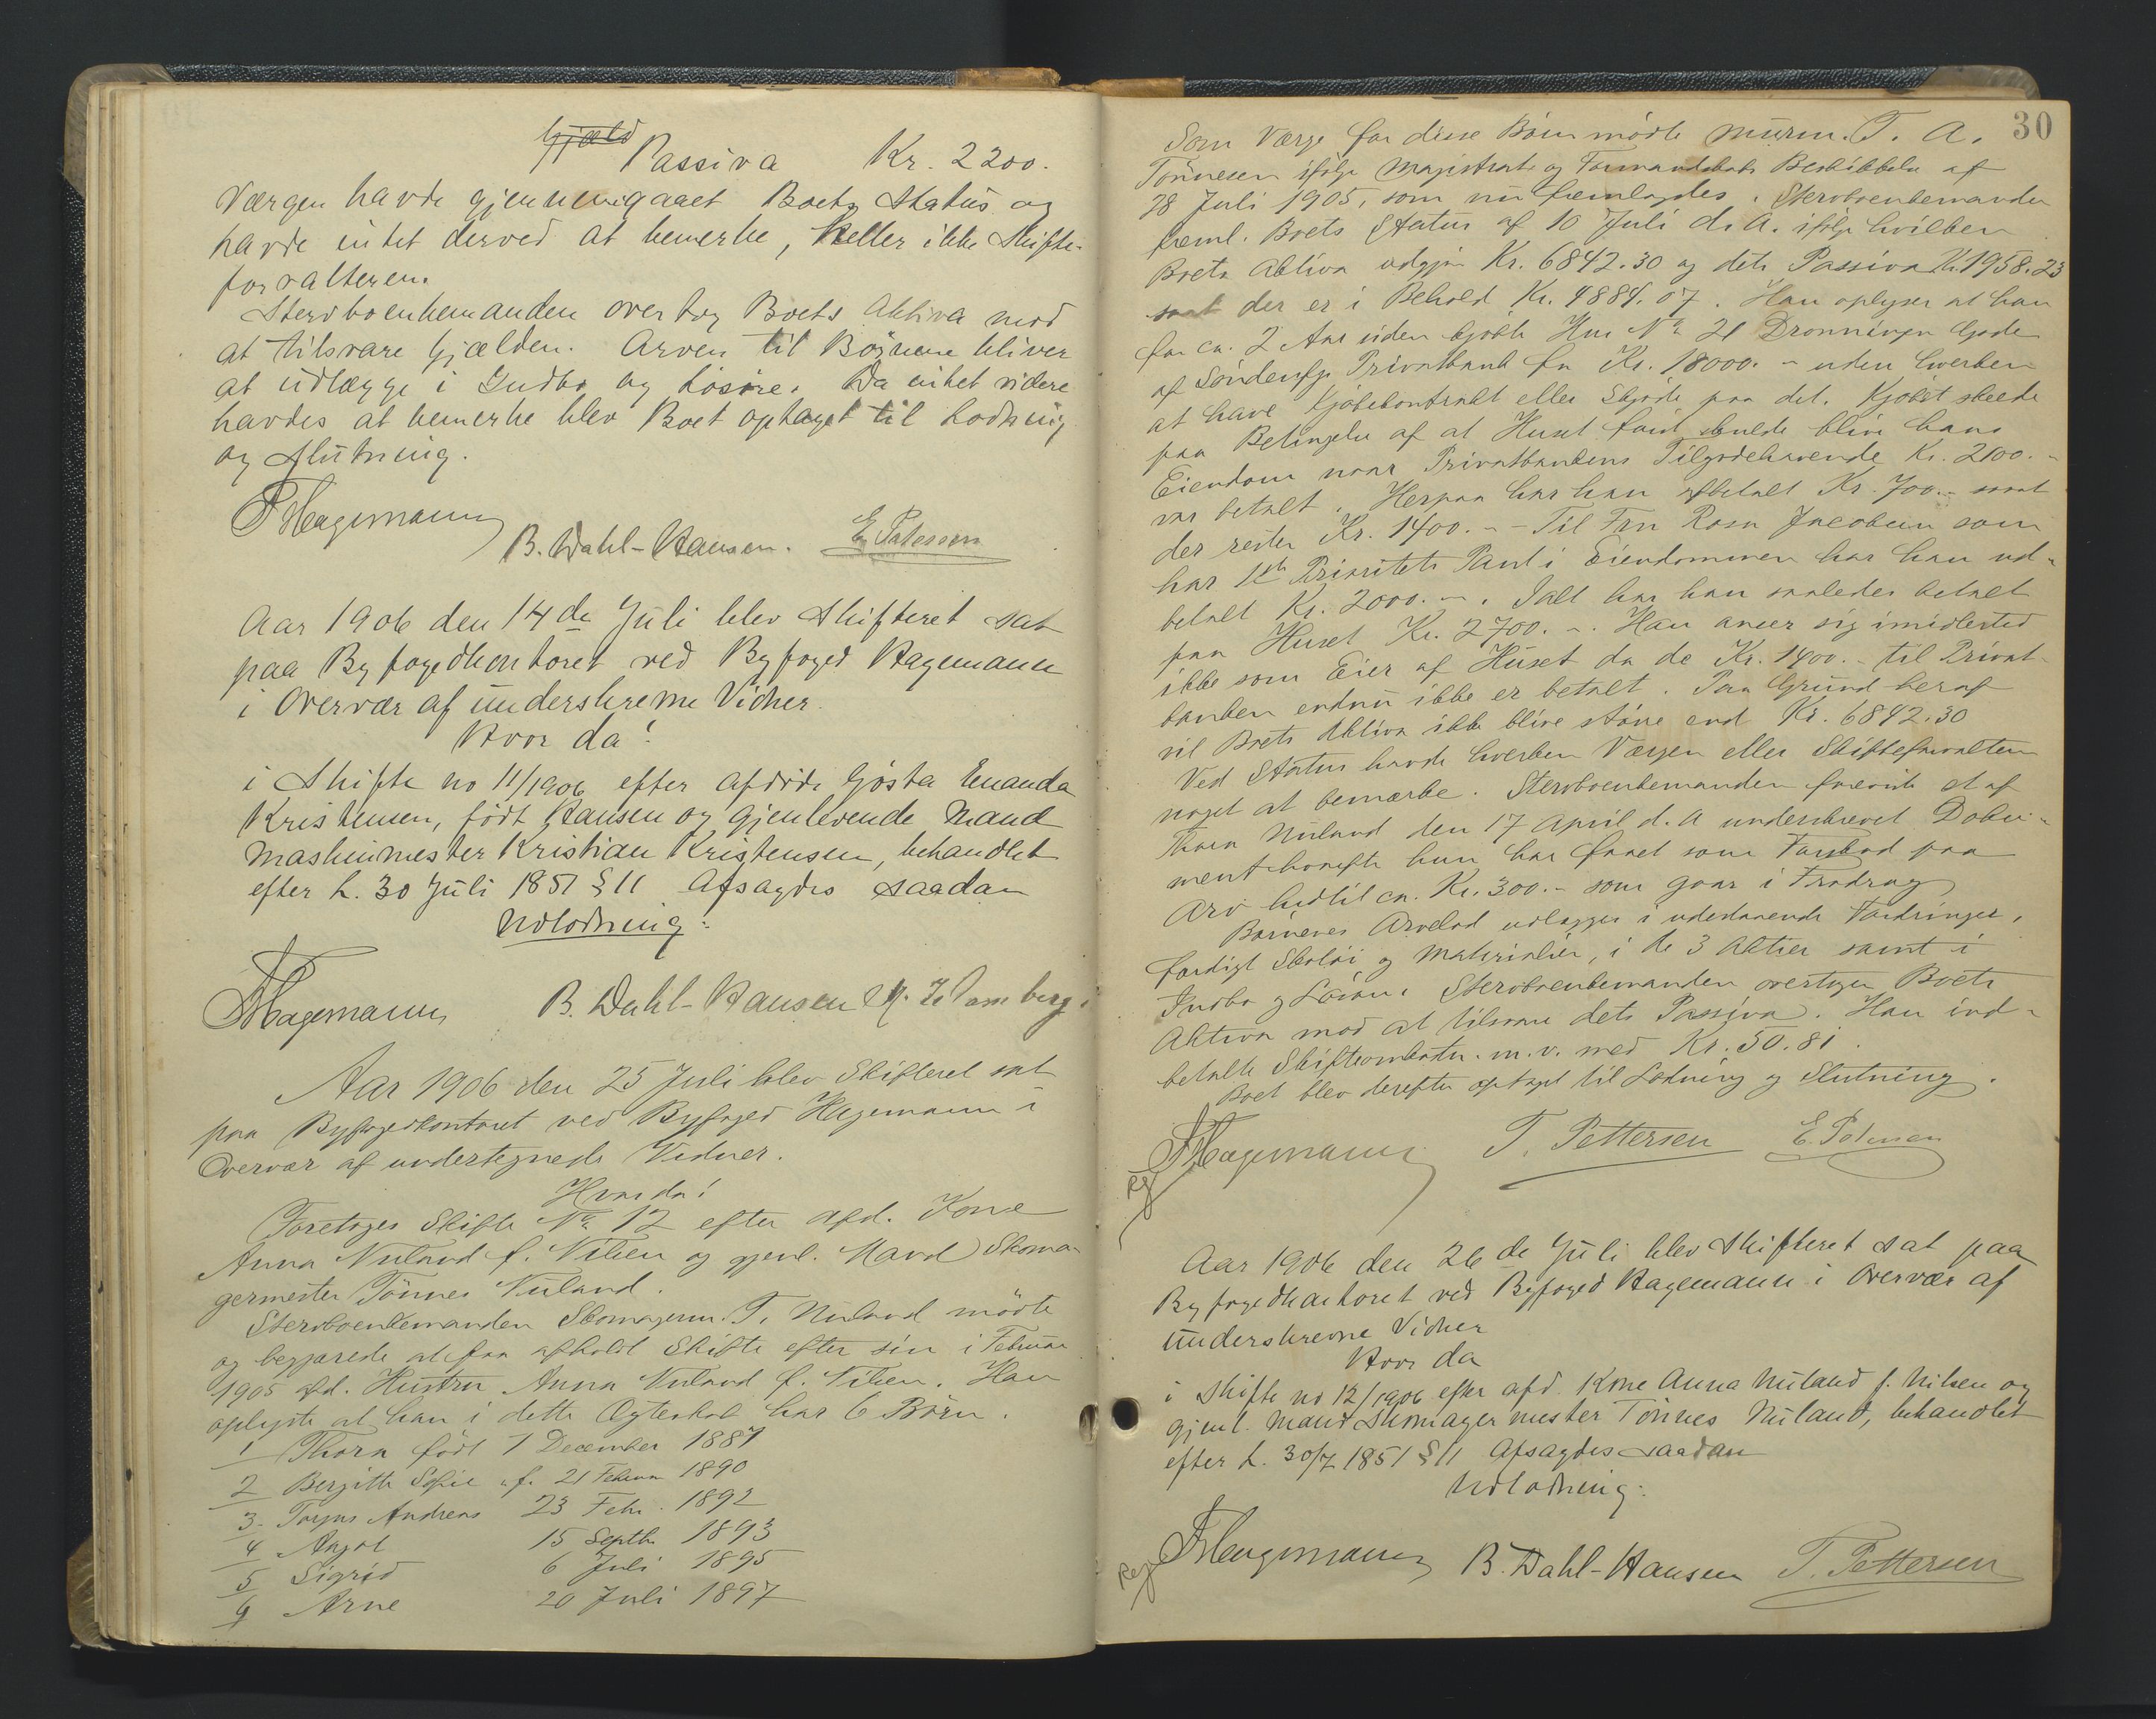 Gjæld
Passiva Kr. 2200.
Værgen havde gjennemgaaet Boets Status og
havde intet derved at bemerke, heller ikke Skifte-
forvalteren.
Stervboenkemanden overtog Boets Aktiva mod
at tilsvare Gjælden. Arven til Börnene bliver
at udlægge i Indbo og Lösöre. Da intet videre
havdes at bemerke blev Boet optaget til Lodning
og Slutning.
Hagemann
B. Dahl-Hansen. E. Petersen
Aar 1906 den 14de Juli blev Skifteret sat
paa Byfogedkontoret ved Byfoged Hagemann
i Overvær af underskrevne Vidner.
Hvor da!
i Skifte no 11/1906 efter afdöde Gösta Emanda
Kristensen, födt Hansen og gjenlevende Mand
Maskinmester Kristian Kristensen, behandlet
efter L. 30 Juli 1851 § 11 Afsagdes saadan
Udlodning:
Hagemann B. Dahl-Hansen
Aar 1906 den 25 Juli blev Skifteret sat
paa Byfogedkontoret ved Byfoged Hagemann i
Overvær af undertegnede Vidner.
Hvorda!
Foretoges Skifte No 12 efter afd. Kone
Anna Nuland f. Nilsen og gjenl. Mand Skoma-
germester Tönnes Nuland.
Stervboenkemanden Skomagerm. T. Nuland mödte
og begjærede at faa afholdt Skifte efter sin i Februar
1905 afd. Hustru Anna Nuland f. Nilsen. Han
oplyste at han i dette Ægteskab har 6 Börn.
1 Thora födt 1 December 1887
2 Bergitte Sofie f. 21 Februar 1890
3. Torjus Andreas 23 Febr. 1892
4 15 Septb. 1893
5 Sigrid 6 Juli 1895
6 Arne 20 Juli 1897
30
Som Værge for disse Börn mödte Murm. T. A.
Tönnesen ifölge Magistrats og Formandskabs Beskikkelse af
28 Juli 1905, som nu fremlagdes. Stervboenkemanden
freml. Boets Status af 10 Juli d. A. ifölge hvilken
Boets Aktiva udgjör Kr. 6842.30 og dets Passiva Kr. 1958.23
saat der er i Behold Kr. 4884.07. Han oplyser at han
for ca. 2 Aar siden kjöbte Hus No 21 Dronningens Gade
af Söndenfj. Privatbank for Kr. 18000.- uden hverken
at have Kjöbekontrakt eller Skjöde paa det. Kjöbet skeede
paa Betingelse af at Huset förd skulde blive hans
Eiendom naar Privatbankens Tilgodehavende Kr. 2100.-
var betalt. Herpaa har han afbetalt Kr. 700.- saat
der rester Kr. 1400.- - Til Fru Rosa Jacobsen som
har 1ste Prioritets Pant i Eiendommen har han ud-
betalt Kr. 2000.-. Ialt har han saaledes betalt
paa Huset Kr. 2700.-. Han anser sig imidlertid
ikke som Eier af Huset da de Kr. 1400.- til Privat-
banken endnu ikke er betalt. Paa Grund heraf
vil Boets Aktiva ikke blive större end Kr. 6842.30
Ved Status havde hverken Værgen eller Skifteforvalteren
noget at bemærke. Stervboenkemanden foreviste et af
Thora Nuland den 17 April d. A underskrevet Doku-
ment hvorefter hun har faaet som Forskud paa
Arv hidtil ca. Kr. 300.- som gaar i Fradrag
Börnenes Arvelod udlægges i udestaaende Fordringer,
færdigt Skotöi og Materialier, i de 3 Aktier samt i
Indbo og Lösöre. Stervboenkemanden overtager Boets
Aktiva mod at tilsvare dets Passiva. Han ind-
betalte Skifteomkostn. m.v. med Kr. 50.81.
Boet blev derefter optaget til Lodning og Slutning.
Hagemann T. Pettersen E. Petersen
Reg
Aar 1906 den 26de Juli blev Skifteret sat paa
Byfogedkontoret ved Byfoged Hagemann i Overvær af
underskrevne Vidner
Hvor da
i Skifte no 12/1906 efter afd. Kone Anna Nuland f. Nilsen og
gjenl. Mand Skomagermester Tönnes Nuland, behandlet
efter L. 30/7 1851 § 11 Afsagdes saadan
Udlodning:
Hagemann B. Dahl-Hansen T. Pettersen
Reg